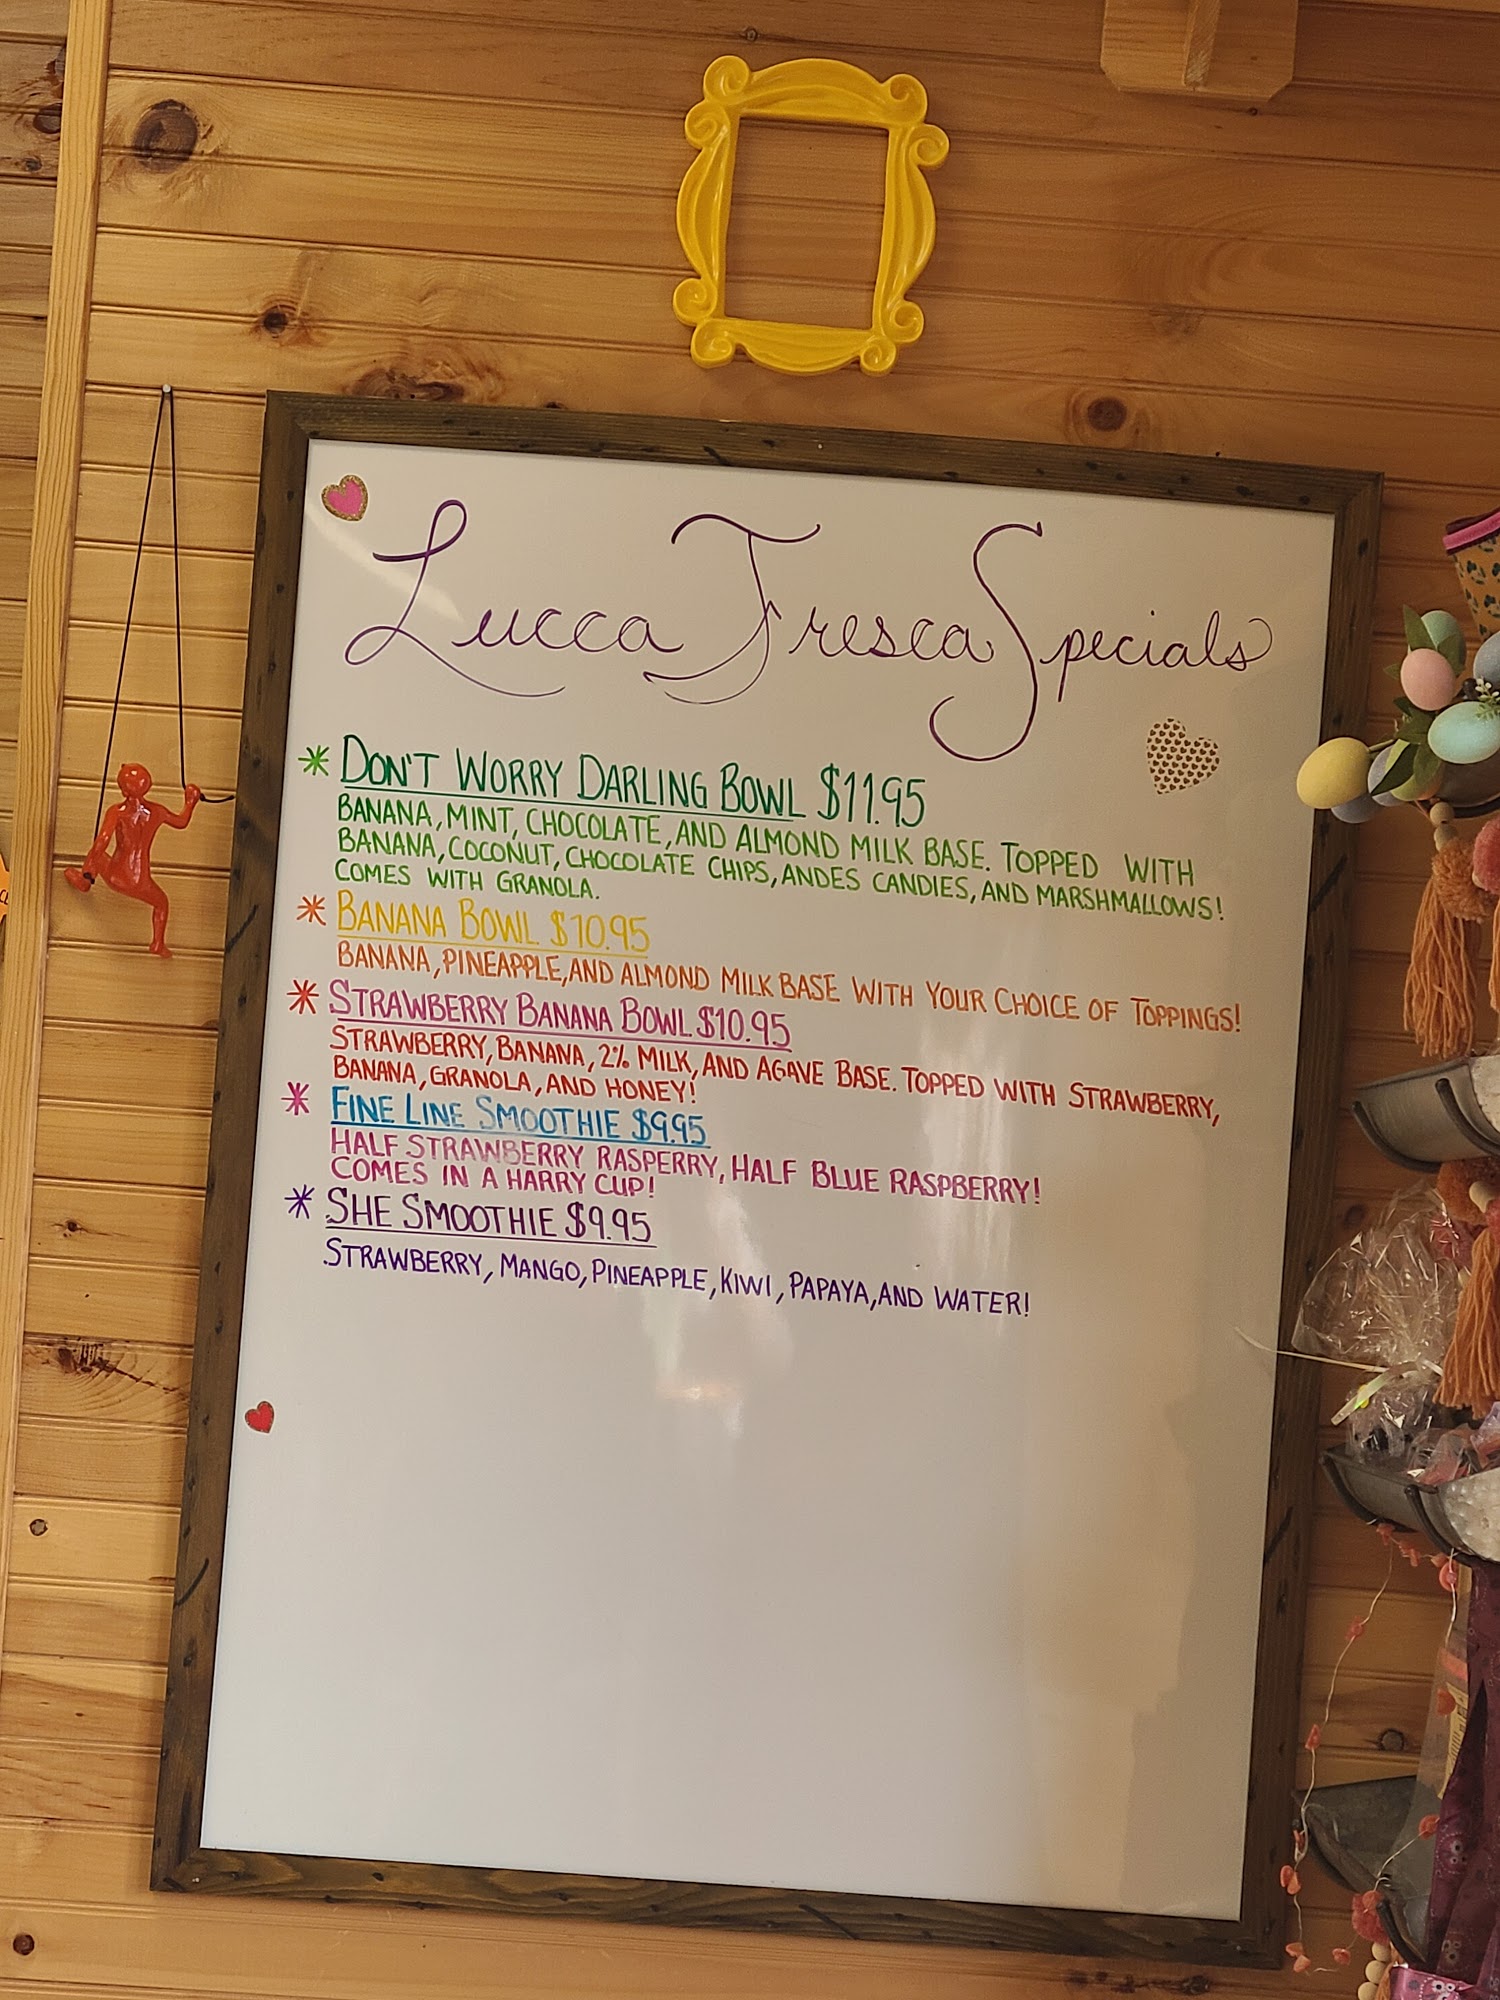 Lucca Fresca Specials
* DON'T WORRY DARLING BOWL $11.95
BANANA, MINT, CHOCOLATE, AND ALMOND MILK BASE. TOPPED WITH
BANANA, COCONUT, CHOCOLATE CHIPS, ANDES CANDIES, AND MARSHMALLOWS!
COMES WITH GRANOLA.
* BANANA BOWL $10.95
BANANA, PINEAPPLE, AND ALMOND MILK BASE WITH YOUR CHOICE OF TOPPINGS!
* STRAWBERRY BANANA BOWL $10.95
STRAWBERRY, BANANA, 2% MILK, AND AGAVE BASE. TOPPED WITH STRAWBERRY,
BANANA, GRANOLA, AND HONEY!
* FINE LINE SMOOTHIE $9.95
HALF STRAWBERRY RASPERRY, HALF BLUE RASPBERRY!
COMES IN A HARRY CUP!
* SHE SMOOTHIE $9.95
STRAWBERRY, MANGO, PINEAPPLE, KIWI, PAPAYA, AND WATER!